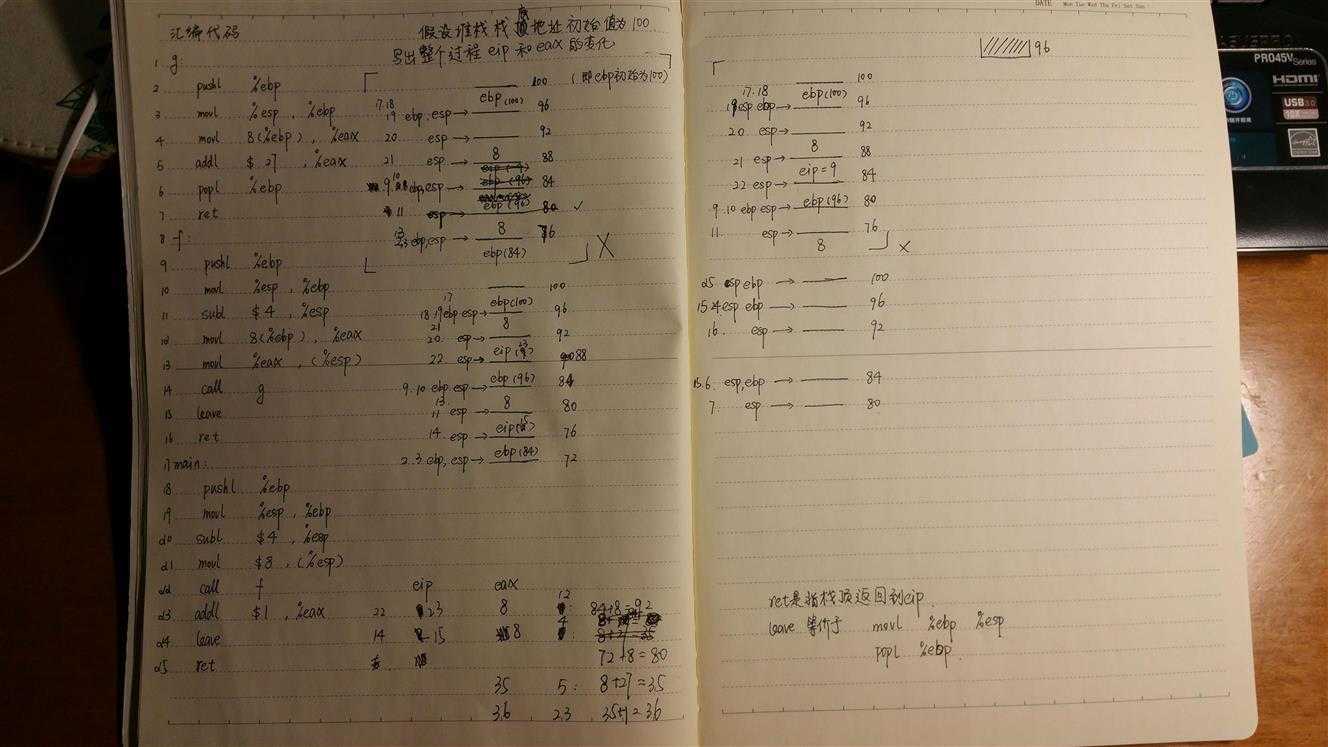 汇编代码
假设堆栈栈底地址初始值为100
写出整个过程 eip 和 eax 的变化
(即ebp初始为100)
1 g:
2 pushl %ebp
3 movl %esp, %ebp
4 movl 8(%ebp), %eax
5 addl $27, %eax
6 popl %ebp
7 ret
8 f:
9 pushl %ebp
10 movl %esp, %ebp
11 subl $4, %esp
12 movl 8(%ebp), %eax
13 movl %eax, (%esp)
14 call g
15 leave
16 ret
17 main:
18 pushl %ebp
19 movl %esp, %ebp
20 subl $4, %esp
21 movl $8, (%esp)
22 call f
23 addl $1, %eax
24 leave
25 ret
100
ebp(100)
17.18
19 ebp, esp→ 96
20 esp→ 92
8
21 esp→ 88
9.10 ebp, esp→ 84
ebp(96)
11 esp→ 80 ✓
8
ebp, esp→ 76
ebp(84)
X
100
17
ebp(100)
18.19 ebp esp→ 96
8
21
20. esp→ 92
22 esp→ 88
ebp(96)
9.10 ebp esp→ 84
8
13
11 esp→ 80
14 esp→ 76
ebp(84)
2.3 ebp, esp→ 72
eip eax
22 23 8 12: 84+8=92
14 15 8 4:
72+8=80
35 5: 8+27=35
36 23. 35+1=36
96
100
17.18
ebp(100)
19 esp ebp→ 96
20 esp→ 92
8
21 esp→ 88
eip=9
22 esp→ 84
9.10 ebp esp→ ebp(96) 80
11. esp→ 76
8
X
25 esp ebp → 100
15.24 esp ebp → 96
16. esp→ 92
15.6. esp, ebp → 84
7 esp → 80
ret是指栈顶返回到eip.
leave 等价于 movl %ebp %esp
popl %ebp.
DATE
Mon Tue Wed Thu Fri Sat Sun
PRO45V Series
HDMI
USB3.0